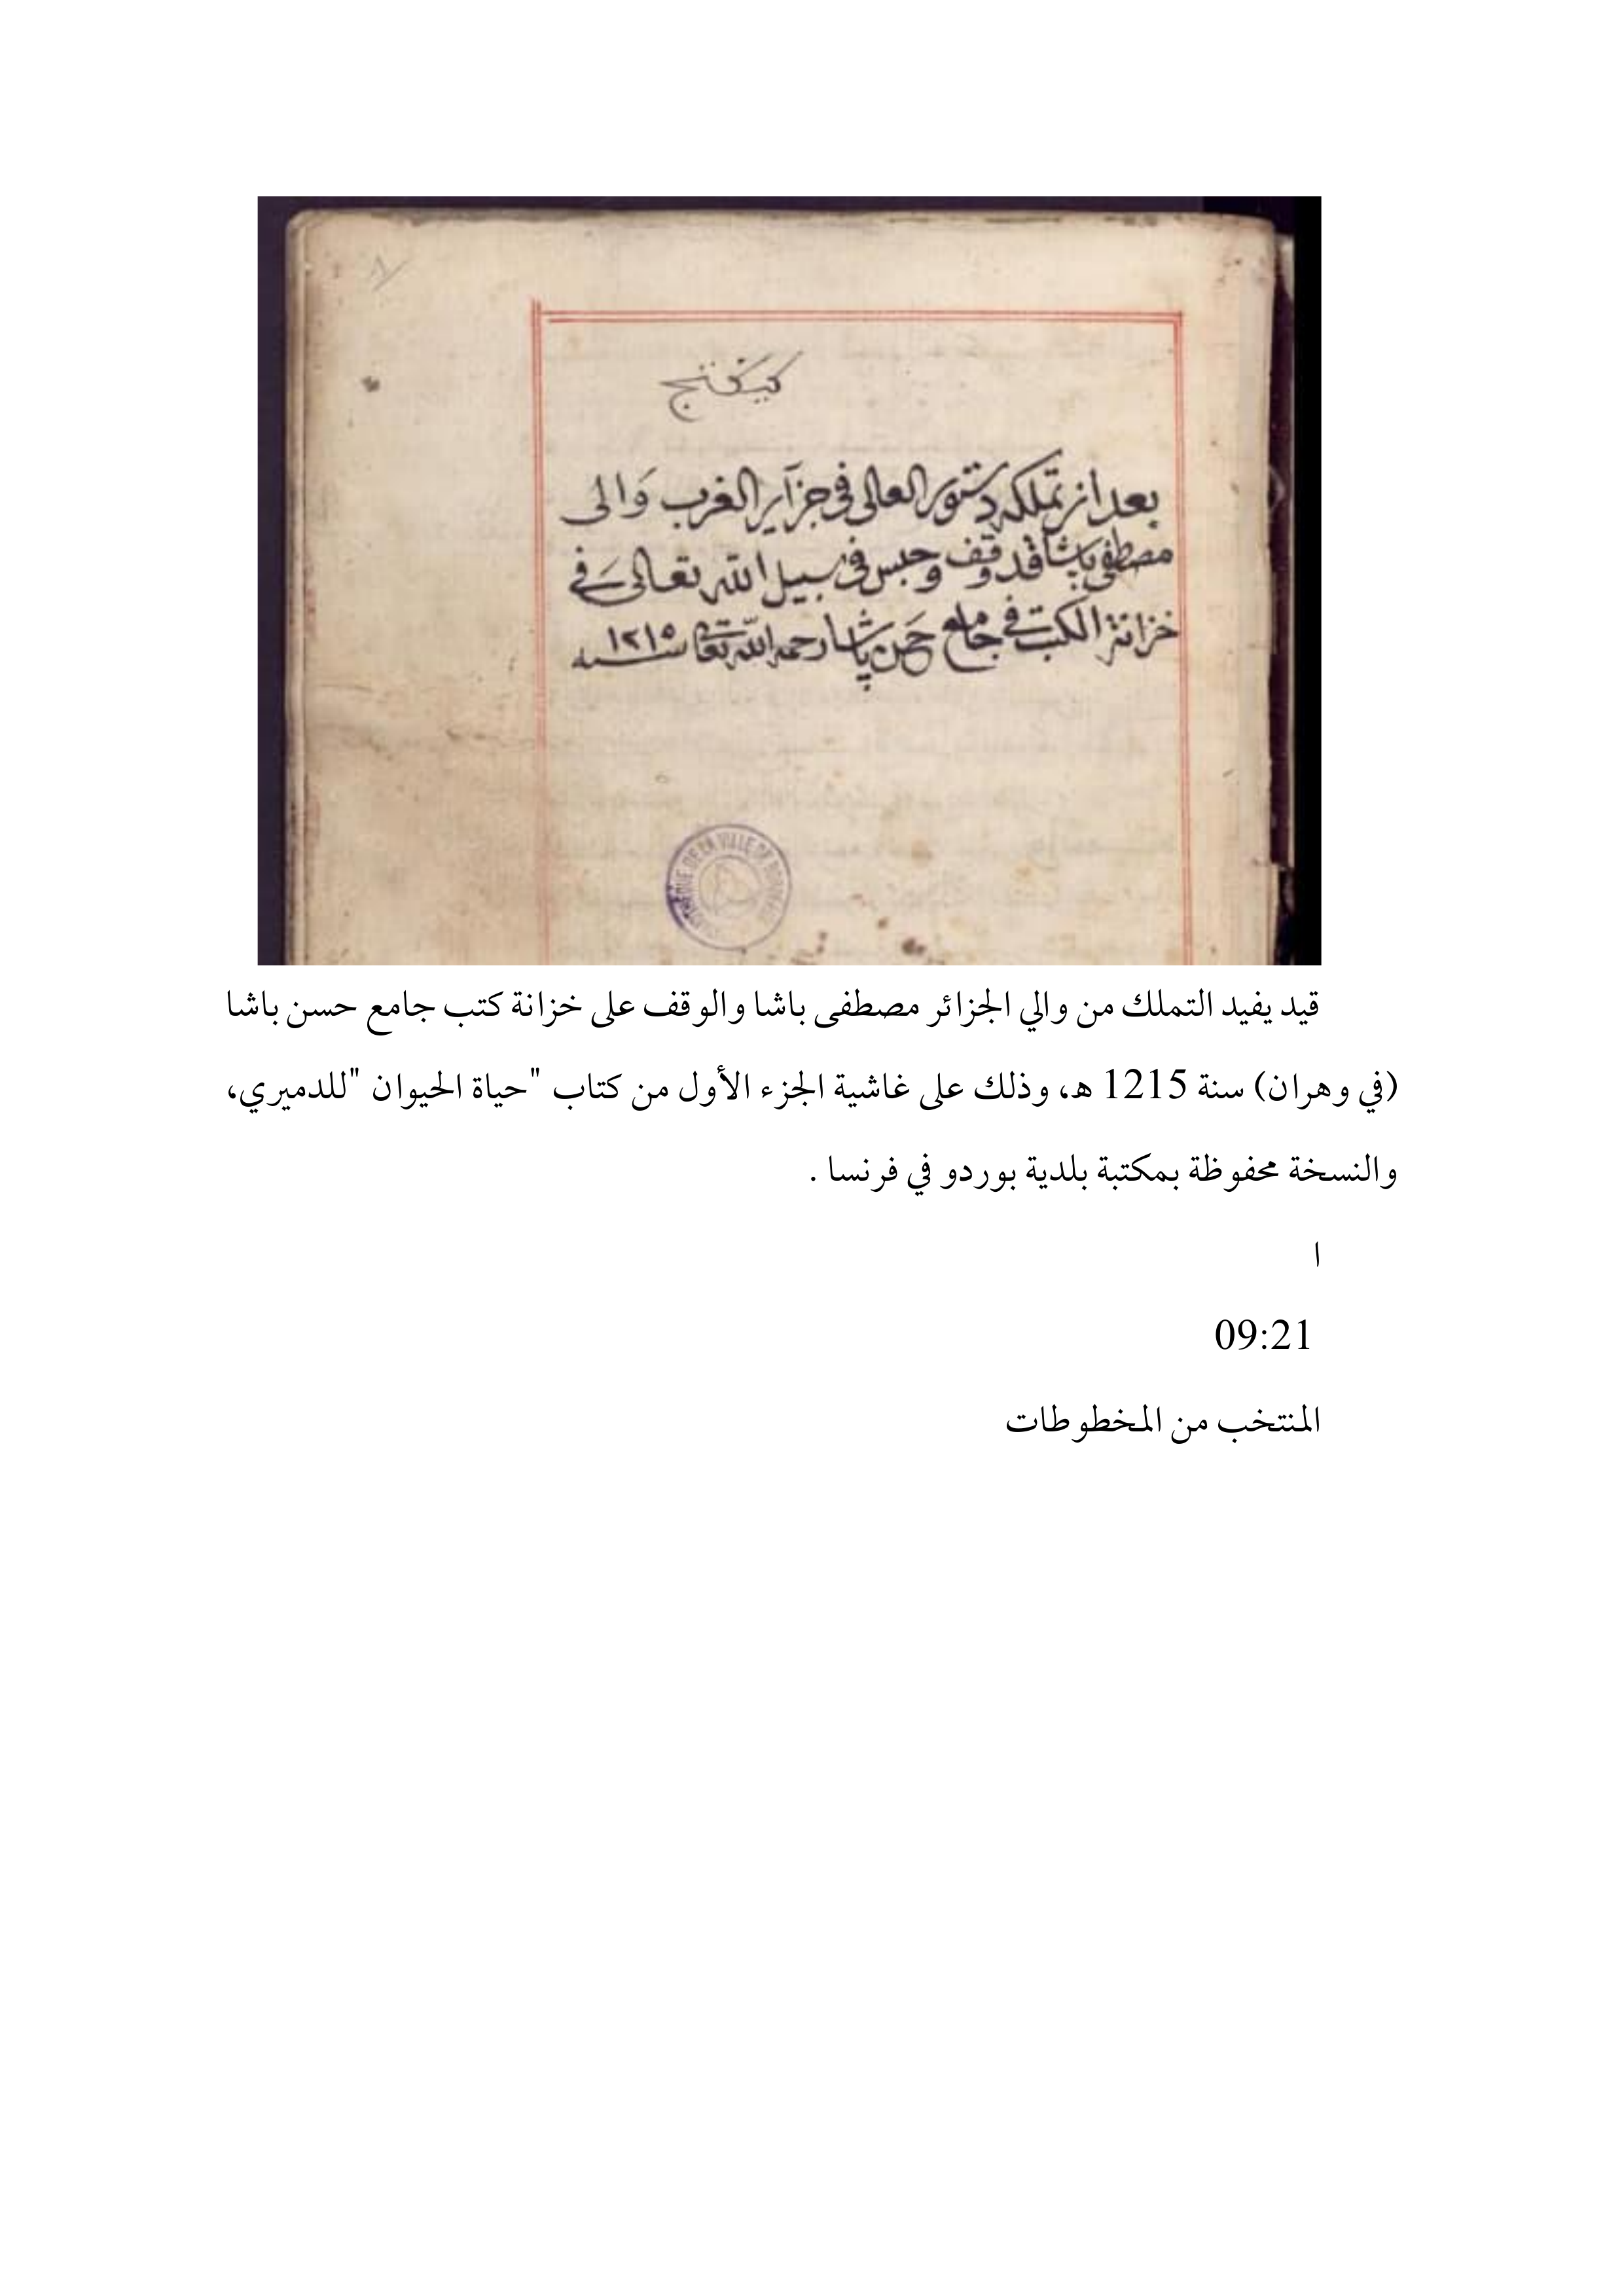 كبيكج
بعد ان تملكه دستور العالى فى جزآير الغرب والى
مصطفى پاشا قد وقف وحبس فى سبيل الله تعالى فى
خزانة الكتب فى جامع حسن پاشا رحمه الله تعالى سنه ١٢١٥
DE LA VILLE DE BORDEAUX
قيد يفيد التملك من والي الجزائر مصطفى باشا والوقف على خزانة كتب جامع حسن باشا
(في وهران) سنة 1215 ه، وذلك على غاشية الجزء الأول من كتاب "حياة الحيوان "للدميري،
والنسخة محفوظة بمكتبة بلدية بوردو في فرنسا .
ا
09:21
المنتخب من المخطوطات